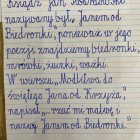 Ksiądz Jan Twardowski
nazywany był „Janem od
Biedronki, ponieważ w jego
poezji znajdziemy biedronki,
mrówki, żuczki, ważki.
W wierszu „Modlitwa do
świętego Jana od Krzyża"
napisał „...rzuć mi małwę i
nazwij Janem od Biedronki."